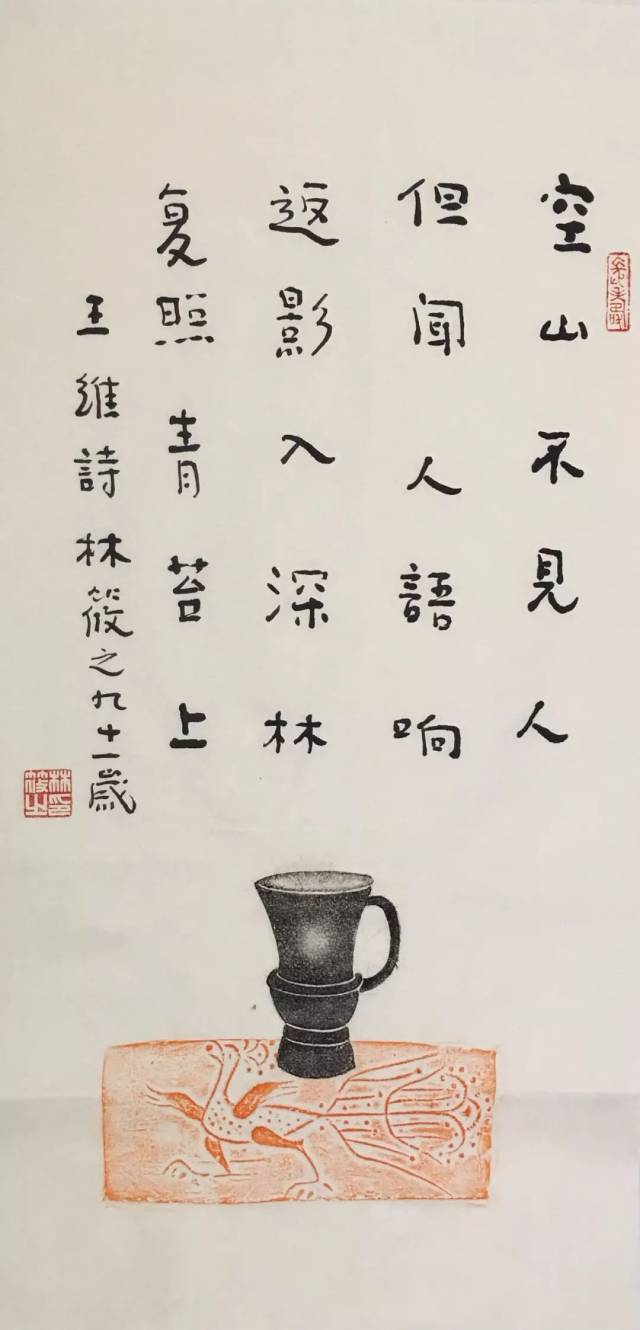 空山不見人
但闻人語响
返影入深林
复照青苔上
王維詩林筱之九十一歲
林筱之印